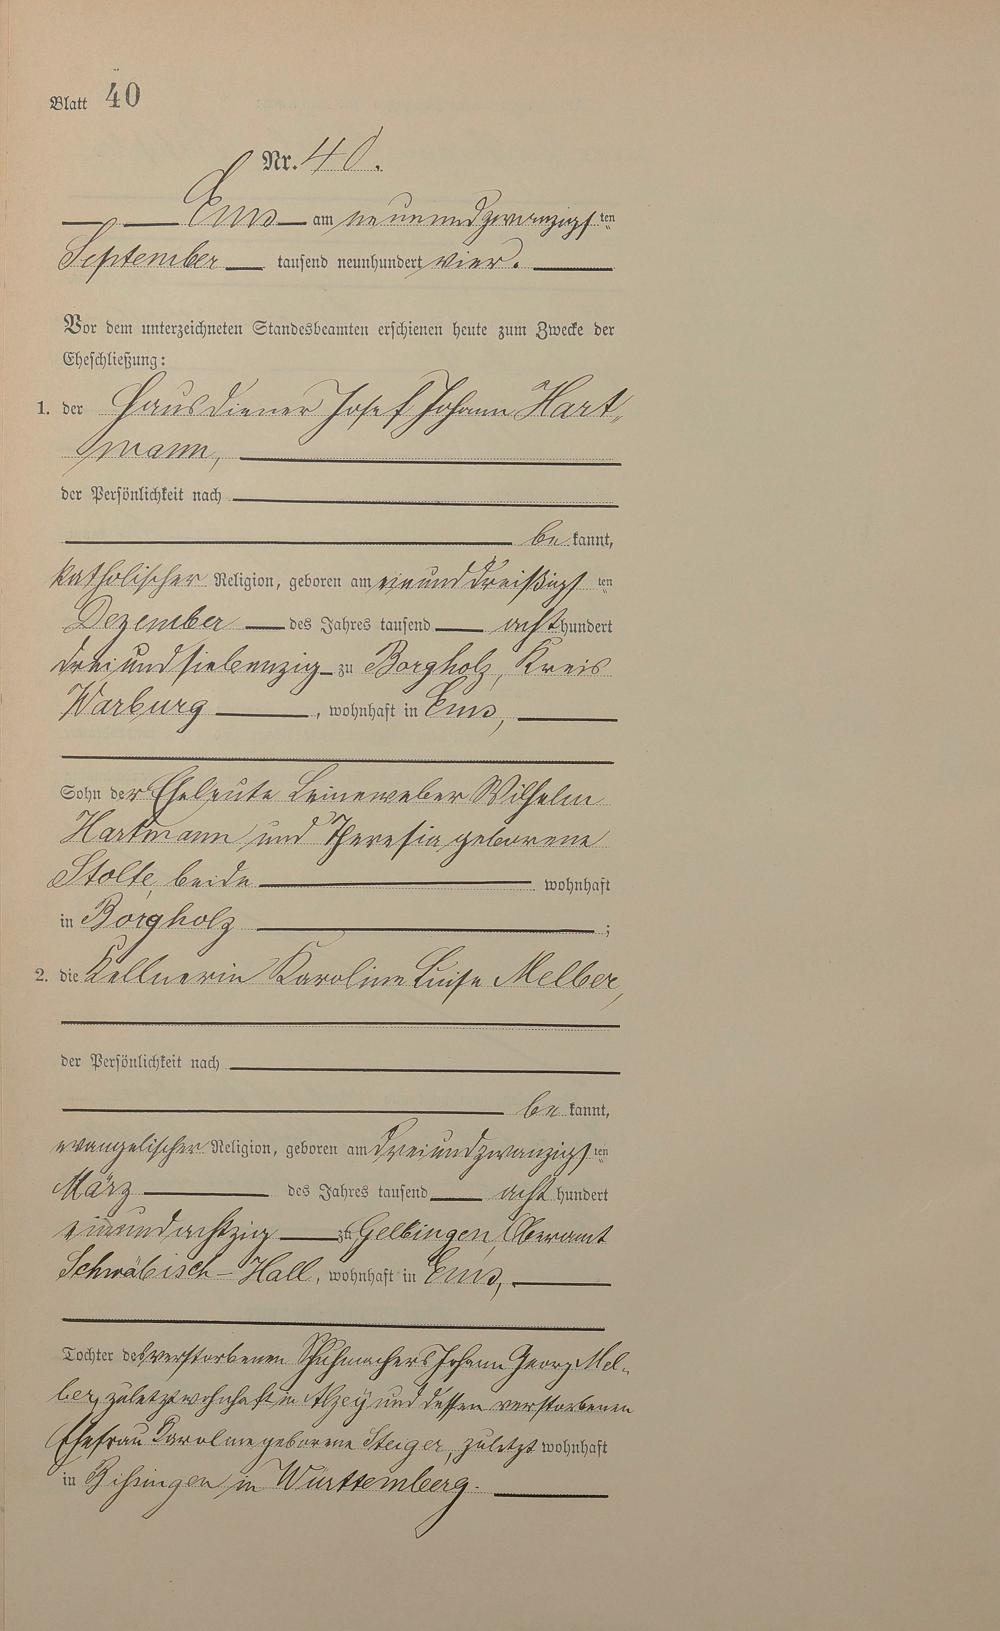 Blatt 40
Nr. 40.
Ems am neunundzwanzigsten
September tausend neunhundert vier.
Vor dem unterzeichneten Standesbeamten erschienen heute zum Zwecke der
Eheschließung:
1. der Hausdiener Josef Johann Hart-
mann,
der Persönlichkeit nach
bekannt,
katholischer Religion, geboren am einunddreißigsten
Dezember des Jahres tausend achthundert
dreiundsiebenzig zu Borgholz, Kreis
Warburg, wohnhaft in Ems,
Sohn der Eheleute Leineweber Wilhelm
Hartmann und Theresia geborene
Stolte, beide wohnhaft
in Borgholz ;
2. die Kellnerin Karoline Luise Melber,
der Persönlichkeit nach
bekannt,
evangelischer Religion, geboren am dreiundzwanzigsten
März des Jahres tausend achthundert
einundachtzig zu Gelbingen, Oberamt
Schwäbisch-Hall, wohnhaft in Ems,
Tochter des verstorbenen Schuhmachers Johann Georg Mel-
ber, zuletzt wohnhaft in Alzey und dessen verstorbenen
Ehefrau Karoline geborene Steiger, zuletzt wohnhaft
in Bissingen in Württemberg.